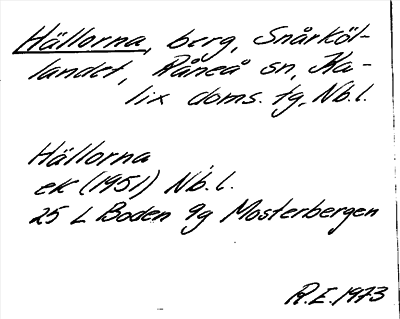 Hällorna, berg, Snårköt-
landet, Råneå sn, Ka-
lix doms. tg, Nb.l.
Hällorna
ek (1951) Nb.l.
25 L Boden 9g Mosterbergen
R.E. 1973